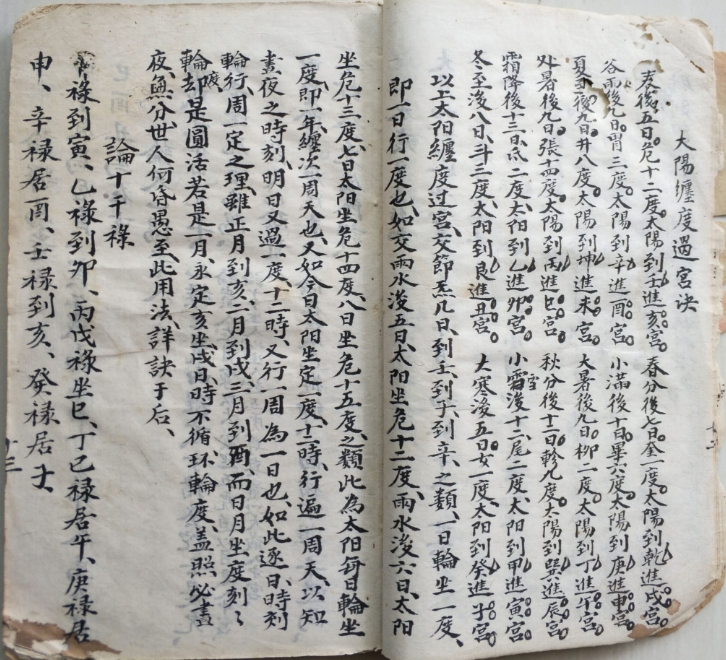 大陽纏度過宮決
春後五日危十二度太陽到壬進亥宮 春分後七日奎一度太陽到乾進戌宮
谷雨後七日胃三度太陽到辛進酉宮 小滿後十日畢六度太陽到庚進申宮
夏至後九日井八度太陽到坤進未宮 大暑後九日柳二度太陽到丁進午宮
处暑後九日張十四度太陽到丙進巳宮 秋分後十一日軫九度太陽到巽進辰宮
霜降後十三日氐二度太阳到乙進卯宮 小雪後十二尾二度太阳到甲進寅宮
冬至後八日斗三度太阳到艮進丑宮 大寒後五日女一度太阳到癸進子宮
以上太阳纏度过宮交節炁几日到壬到子到辛之類一日輪坐一度、
即一日行一度也、如交雨水後五日太阳坐危十二度、雨水後六日太阳
坐危十三度、七日太阳坐危十四度、八日坐危十五度、之類此為太阳每日輪坐
一度、即一年纏次一周天也、又如今日太阳坐定一度、十二時、行遍一周天、以知
晝夜之時刻、明日又過一度、十二時、又行一周為一日也、如此逐日、時刻
輪行、周一定之理、雖正月到亥、二月到戌、三月到酉、而日月坐度刻々
輪度却是圓活若是一月、永定亥坐戌日、時不循环輪度、盖照必晝
夜、無分世人何昏愚至此用法、詳訣于后、
論十干禄
甲禄到寅、乙禄到卯、丙戊禄坐巳、丁己禄居午、庚禄居
申、辛禄居酉、壬禄到亥、癸禄居子、
十三